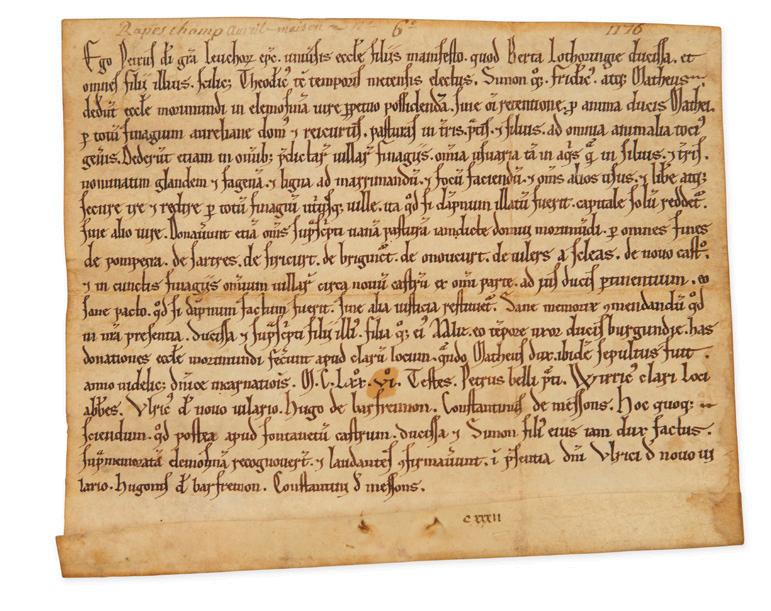 Rapeschamp 6º 1176
Ego Petrus dī grā leuchorꝫ epc. uniuersis eccłe filiis manifesto. quod Berta lothoringie ducissa. et
omnes filii illius. scilic; Theodic' tc̄ temporis metensis electus. Simon q;. fridic'. atq; Matheus
dedūt eccłe morimundi in elemosinā iure ꝑpetuo possidendā. sine oī retentione. ꝑ anima ducis Mathei.
ꝑ totū finagium aureliane dom' ⁊ reicurtis. pasturas in tr̄is. p̄tis. ⁊ siluis. ad omnia animalia toci'
gen̄is. Dederūt etiam in omīb; p̄dictarꝫ uillarꝫ finagiis. omnia usuaria tā in aq̄s q̄ in siluis. ⁊ tr̄is.
nominatim glandem ⁊ fagenā. ⁊ ligna ad marrimandū. ⁊ focū faciendū. ⁊ om̄s alios usus. ⁊ libe atq;
secure ire ⁊ redire ꝑ totū finagiū utriusq; uille. ita qd̄ si dāpnum illatū fuerit. capitale solū reddet'.
sine alio iure. Donauerunt etiā om̄s sup̄scripti uanā pasturā iamdicte domui morimūdi. ꝑ omnes fines
de pompegra. de sartres. de siricurt. de briginet. de onoucurt. de uilers a scleas. de nouo castō.
⁊ in cunctis finagiis omnium uillarꝫ circa nouū castrū ex omi parte. ad ius ducis ꝑtinentium. eo
sane pacto. qd̄ si dāpnum factum fuerit. sine alia iusticia restituet'. Sane memorie ꝯmendandū qd̄
in mā presentia. ducissa ⁊ sup̄scripti filii illi'. filia q; ei' Aalic. eo tēpore uxor ducis burgundie. has
donationes eccłe morimundi fecerunt apud clarū locum. qn̄do Matheus dux. ibidē sepultus fuit.
anno uidelic; dn̄ice incarnatiōis. M. C. Lxx. vi. Testes. Petrus belli p̄ti. Wirric' clari loci
abbes. Vlric' d̄ nouo uilario. Hugo de barfremon. Constantinus de messons. Hoc quoq;
sciendum. qd̄ postea apud fontanetū castrum. ducissa ⁊ Simon fili' eius iam dux factus.
sup̄memoratā elemosinā recognouerūt. ⁊ laudantes ꝯfirmauerunt. ī p̄sentia dn̄i Vlrici d̄ nouo ui
lario. Hugonis d̄ barfremon. Constantini d̄ messons.
cxxxii